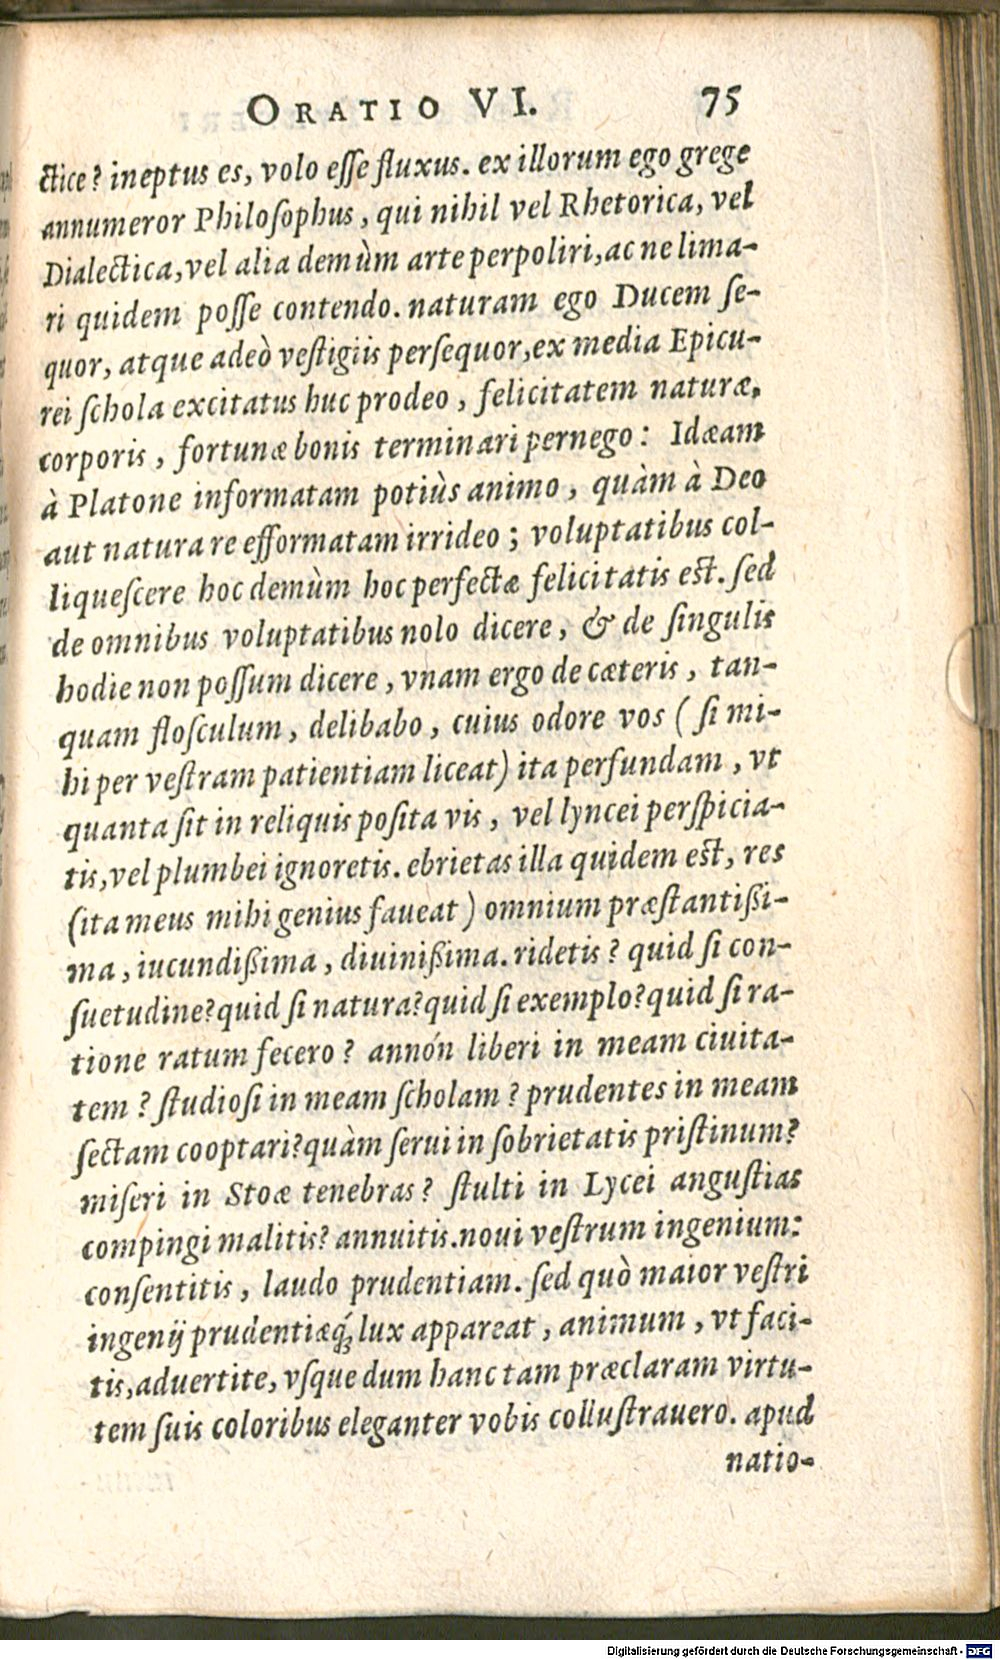 ORATIO VI. 75
ctice? ineptus es, volo esse fluxus. ex illorum ego grege
annumeror Philosophus, qui nihil vel Rhetorica, vel
Dialectica, vel alia demùm arte perpoliri, ac ne lima-
ri quidem posse contendo. naturam ego Ducem se-
quor, atque adeò vestigiis persequor, ex media Epicu-
rei schola excitatus huc prodeo, felicitatem naturæ,
corporis, fortunæ bonis terminari pernego: Idæam
à Platone informatam potiùs animo, quàm à Deo
aut natura re efformatam irrideo; voluptatibus col-
liquescere hoc demùm hoc perfectæ felicitatis est. sed
de omnibus voluptatibus nolo dicere, & de singulis
hodie non possum dicere, vnam ergo de cæteris, tan-
quam flosculum, delibabo, cuius odore vos (si mi-
hi per vestram patientiam liceat) ita perfundam, vt
quanta sit in reliquis posita vis, vel lyncei perspicia-
tis, vel plumbei ignoretis. ebrietas illa quidem est, res
(ita meus mihi genius faueat) omnium præstantißi-
ma, iucundißima, diuinißima. ridetis? quid si con-
suetudine? quid si natura? quid si exemplo? quid si ra-
tione ratum fecero? annón liberi in meam ciuita-
tem? studiosi in meam scholam? prudentes in meam
sectam cooptari? quàm serui in sobrietatis pristinum?
miseri in Stoæ tenebras? stulti in Lycei angustias
compingi malitis? annuitis. noui vestrum ingenium:
consentitis, laudo prudentiam. sed quò maior vestri
ingenij prudentiæq́; lux appareat, animum, vt faci-
tis, aduertite, vsque dum hanc tam præclaram virtu-
tem suis coloribus eleganter vobis collustrauero. apud
natio-
Digitalisierung gefördert durch die Deutsche Forschungsgemeinschaft - DFG